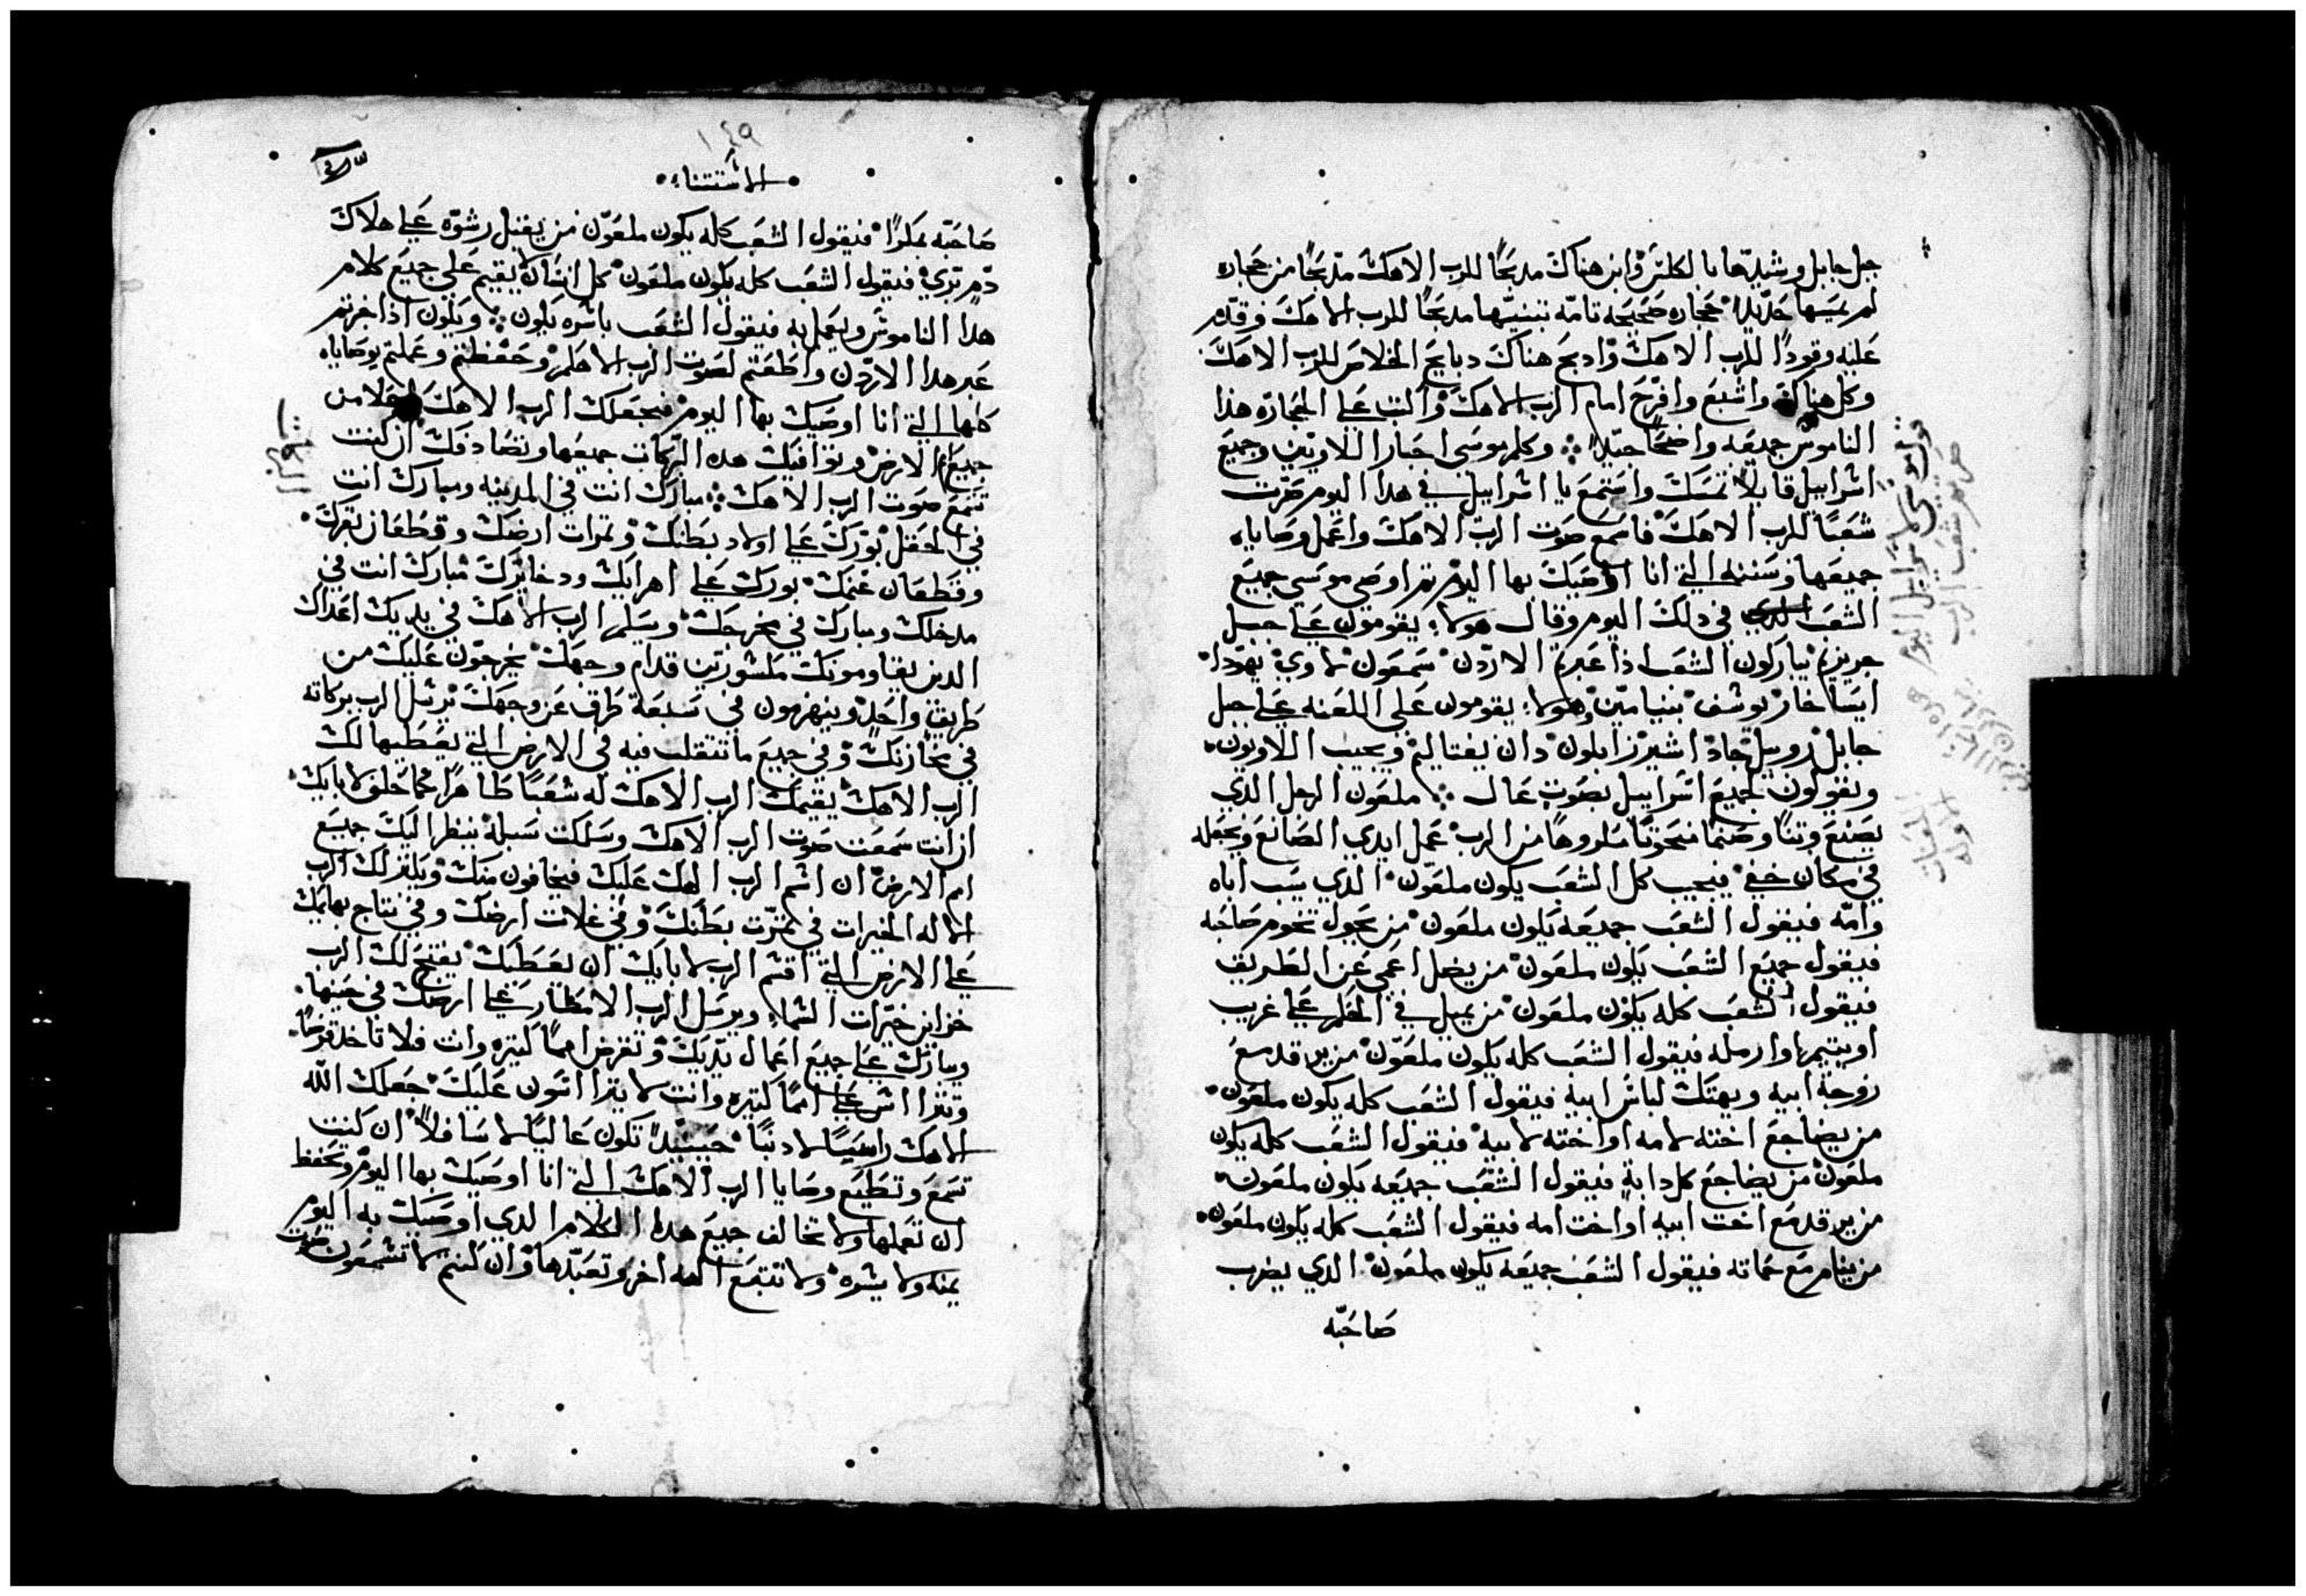 جبل جابل وشيدها بالكلس وابن هناك مدبحًا للرب الاهك مدبحًا من حجاره
لم يمسها حديدًا حجاره صحيحه تامه تبنيها مدبحًا للرب الاهك وقدم
عليه وقودًا للرب الاهك وادبح هناك دبايح الخلاص للرب الاهك
وكل هناك واشبع وافرح امام الرب الاهك واكتب على الحجاره هذا
الناموس جميعه واضحًا جيدًا ⁘ وكلم موسى احبارا اللاويين وجميع
اسراييل قايلا تمسك واستمع يا اسراييل في هدا اليوم صرت
شعبًا للرب الاهك فاسمع صوت الرب الاهك واعمل وصاياه
جميعها وسننه التي انا اوصيك بها اليوم تم اوصى موسى جميع
الشعب في دلك اليوم وقال هولاء يقومون على جبل
جريزيم يباركون الشعب اذا عبرتم الاردن سمعون لاوي يهودا
ايساخار يوسف بنيامين وهولاء يقومون على اللعنه على جبل
جابل روبيل جاد اشير زابلون دان يفتاليم ويجيب اللاويون
ويقولون لجميع اسراييل بصوت عال ⁘ ملعون الرجل الدي
يصنع وتنًا وصنما منحوتًا مكروهًا من الرب عمل ايدي الصانع ويجعله
في مكان خفي فيجيب كل الشعب يكون ملعون الذي يسب اباه
وامه فيقول الشعب جميعه يكون ملعون من يحول تخوم صاحبه
فيقول جميع الشعب يكون ملعون من يضل اعمى عن الطريق
فيقول الشعب كله يكون ملعون من يميل في الحكم على غريب
او يتيم او ارمله فيقول الشعب كله يكون ملعون من يرقد مع
زوجة ابيه ويهتك لباس ابيه فيقول الشعب كله يكون ملعون
من يضاجع اخته لامه او اخته لابيه فيقول الشعب كله يكون
ملعون من يضاجع كل دابه فيقول الشعب جميعه يكون ملعون
من يرقد مع اخت ابيه او اخت امه فيقول الشعب كله يكون ملعون
من ينام مع حماته فيقول الشعب جميعه يكون ملعون الدي يضرب
صاحبه
١٤٩
الاستتناء
صاحبه بمكرًا فيقول الشعب كله يكون ملعون من يقبل رشوه على هلاك
دم بري فيقول الشعب كله يكون ملعون كل انسان لا يقيم على جميع كلام
هدا الناموس ويعمل به فيقول الشعب باسره يكون ⁘ ويكون اذا جزتم
عبر هدا الاردن واطعتم لصوت الرب الاهكم وحفظتم وعملتم بوصاياه
كلها التي انا اوصيك بها اليوم فيجعلك الرب الاهك من
جميع الارض وتوافيك هده البركات جميعها وتصادفك ان كنت
تسمع صوت الرب الاهك ⁘ مبارك انت في المدينه ومبارك انت
في الحقل بورك على اولاد بطنك وتمرات ارضك وقطعان بقرك
وقطعان غنمك بورك على اهرايك ودخايرك مبارك انت في
مدخلك ومبارك في مخرجك ويسلم الرب الاهك في يديك اعداك
الدين يقاومونك مكسورين قدام وجهك يخرجون عليك من
طريق واحد وينهزمون في سبعة طرق عن وجهك يرسل الرب بركاته
في مخازنك وفي جميع ما تتقلب فيه في الارض التي يعطيها لك
الرب الاهك يقيمك الرب الاهك له شعبًا طاهرًا كما حلف لابايك
ان انت سمعت صوت الرب الاهك وسلكت سبله ينظر اليك جميع
امم الارض ان اسم الرب الهك عليك فيخافون منك ويكتر لك الرب
الاله الخيرات في تمرت بطنك وفي غلات ارضك وفي نتاج بهايمك
على الارض التي اقسم الرب لابايك ان يعطيك يفتح لك الرب
خزاين خيرات السماء ويرسل الرب الامطار على ارضك في حينها
ويبارك على جميع اعمال يديك وتقرض اممًا كتيره وانت فلا تاخد قرضًا
وتترااس على اممًا كتيره وانت لا يتراسون عليك جعلك الله
الاهك راسًا لا دنبًا حينيد تكون عاليًا لا سافلًا ان كنت
تسمع وتطيع وصايا الرب الاهك التي انا اوصيك بها اليوم وتحفظ
ان تعملها ولا تخالف جميع هدا الكلام الدي اوصيك به اليوم
يمنه ولا يسره ولا تتبع الهه اخر وتعبدها وان كنتم لا تسمعون صوت
البركات